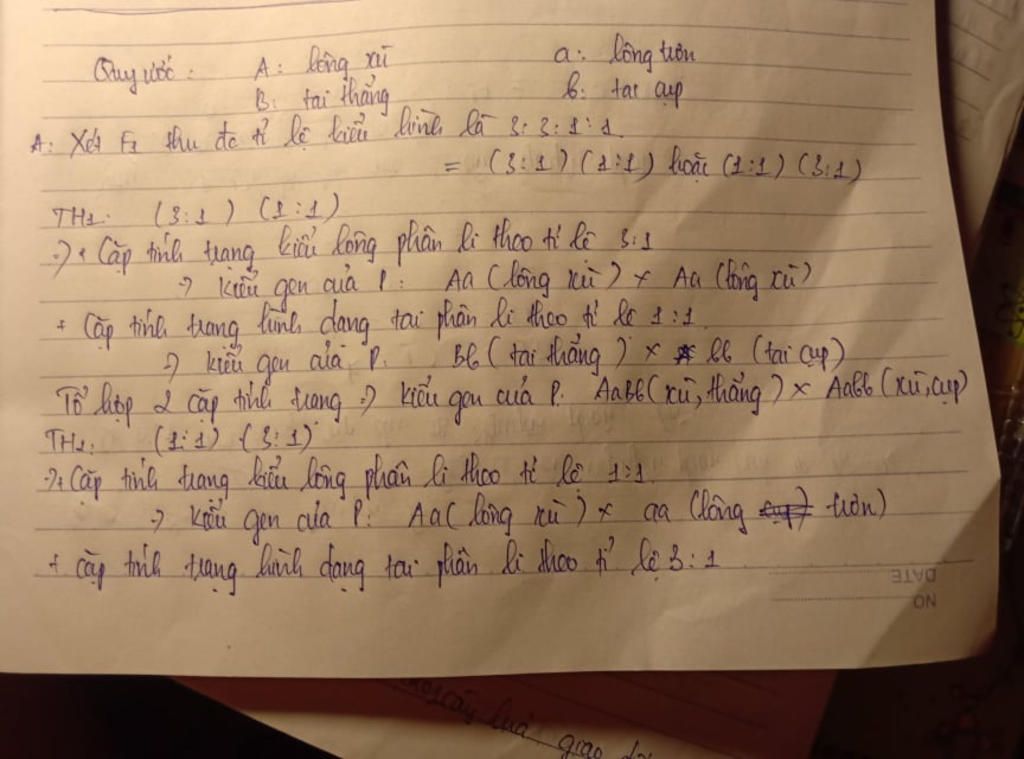 Quy ước: A: lông xù a: lông trơn
B: tai thẳng b: tai cụp
A: Xét F1 thu đc tỉ lệ kiểu hình là 3:3:1:1.
= (3:1) (1:1) hoặc (1:1) (3:1)
TH1: (3:1) (1:1)
=) + Cặp tính trạng kiểu lông phân li theo tỉ lệ 3:1
=) kiểu gen của P: Aa (lông xù) x Aa (lông xù)
+ Cặp tính trạng hình dạng tai phân li theo tỉ lệ 1:1.
=) kiểu gen của P. Bb (tai thẳng) x bb (tai cụp)
Tổ hợp 2 cặp tính trạng =) kiểu gen của P: AaBb (xù, thẳng) x Aabb (xù, cụp)
TH2: (1:1) (3:1)
=) + Cặp tính trạng kiểu lông phân li theo tỉ lệ 1:1.
=) kiểu gen của P: Aa (lông xù) x aa (lông trơn)
+ cặp tính trạng hình dạng tai phân li theo tỉ lệ 3:1
DATE
NO
cây lúa giao